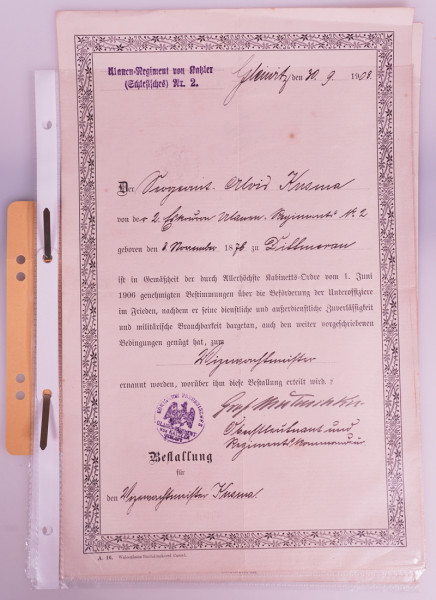 Ulanen-Regiment von Katzler
(Schlesisches) Nr. 2.
Gleiwitz, den 30. 9. 1908.
Der Sergeant Alois Kusma
von der 2. Eskadron Ulanen-Regiments Nr. 2
geboren den November 1876 zu Dittmerau
ist in Gemäßheit der durch Allerhöchste Kabinetts-Ordre vom 1. Juni
1906 genehmigten Bestimmungen über die Beförderung der Unteroffiziere
im Frieden, nachdem er seine dienstliche und außerdienstliche Zuverlässigkeit
und militärische Brauchbarkeit dargetan, auch den weiter vorgeschriebenen
Bedingungen genügt hat, zum
Vizewachtmeister
ernannt worden, worüber ihm diese Bestallung erteilt wird.
Graf Matuschka
Oberstleutnant und
Regimentskommandeur
Bestallung
für
den Vizewachtmeister Kusma
A. 16.